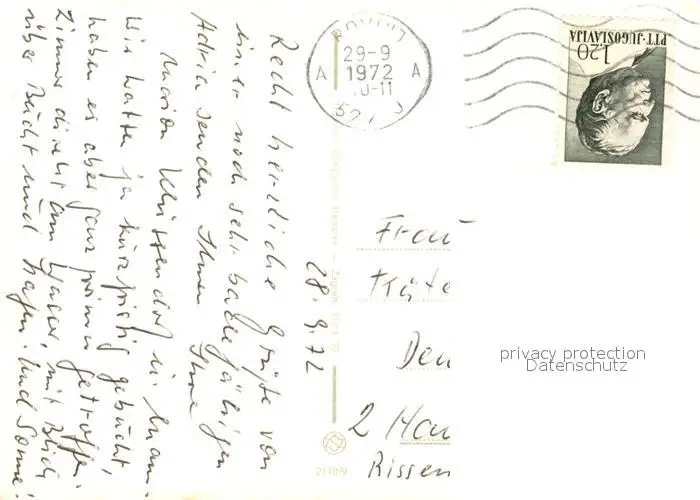 28.9.72
Recht herzliche Grüße von
einer noch sehr badefähigen
Adria senden Ihnen Ihre
Marion
Wir hatten ja kurzfristig gebucht,
haben es aber ganz prima getroffen.
Zimmer direkt am Wasser, mit Blick
über Bucht und Hafen. Und Sonne!
ROVINJ
29-9
A 1972 A
10-11
PTT-JUGOSLAVIJA
1.20
Frau
Käte
2 Ham
Rissen
privacy protection
Datenschutz